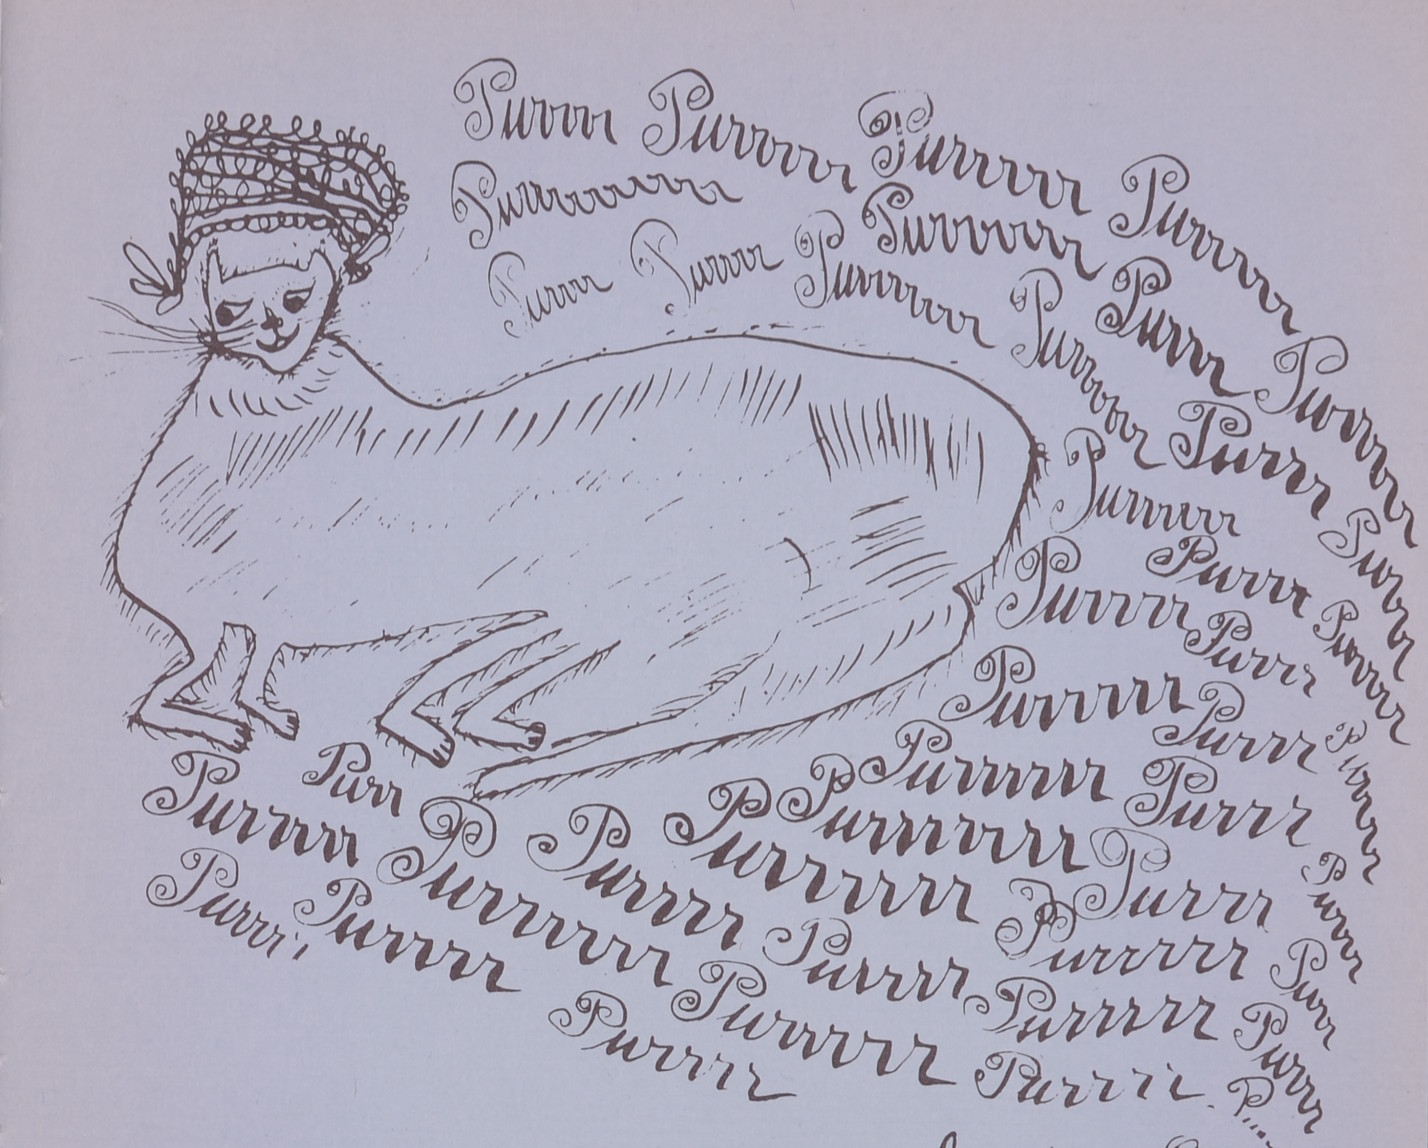 Purrrr Purrrrrr Purrrrrr Purrrrr
Purrrrrrrrrr Purrrrrrr Purrr Purrrrr
Purrrr Purrrrr Purrrrrrr Purrrrrr Purrrr Purrrr
Purrrrrr
Purrrrr Purrr Purrrrr
Purrrrrr Purrrr
Purrrrrr Purrrr Purrrrr
Purr Purrrrrrr Purrrr
Purrrrr Purrrrrrr Purrrrr Purrrrrrr Purrrr Purrrr
Purrrr Purrrrr Purrrrr Purrrrrr Purrr
Purrrrr Purrrrrr Purrrrr Purrrr
Purrrr